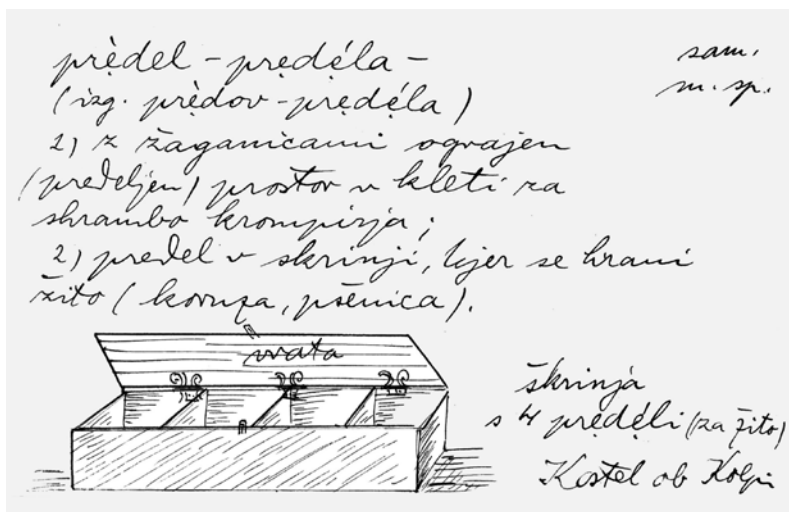 prèdel - prẹdẹ́la -
sam.
m. sp.
(izg. prèdov - prẹdẹ́la)
1) z žaganicami ograjen
(predeljen) prostor v kleti za
shrambo krompirja;
2) predel v skrinji, kjer se hrani
žito (koruza, pšenica).
vrata
škrinja
s 4 prẹdẹ́li (za žito)
Kostel ob Kolpi